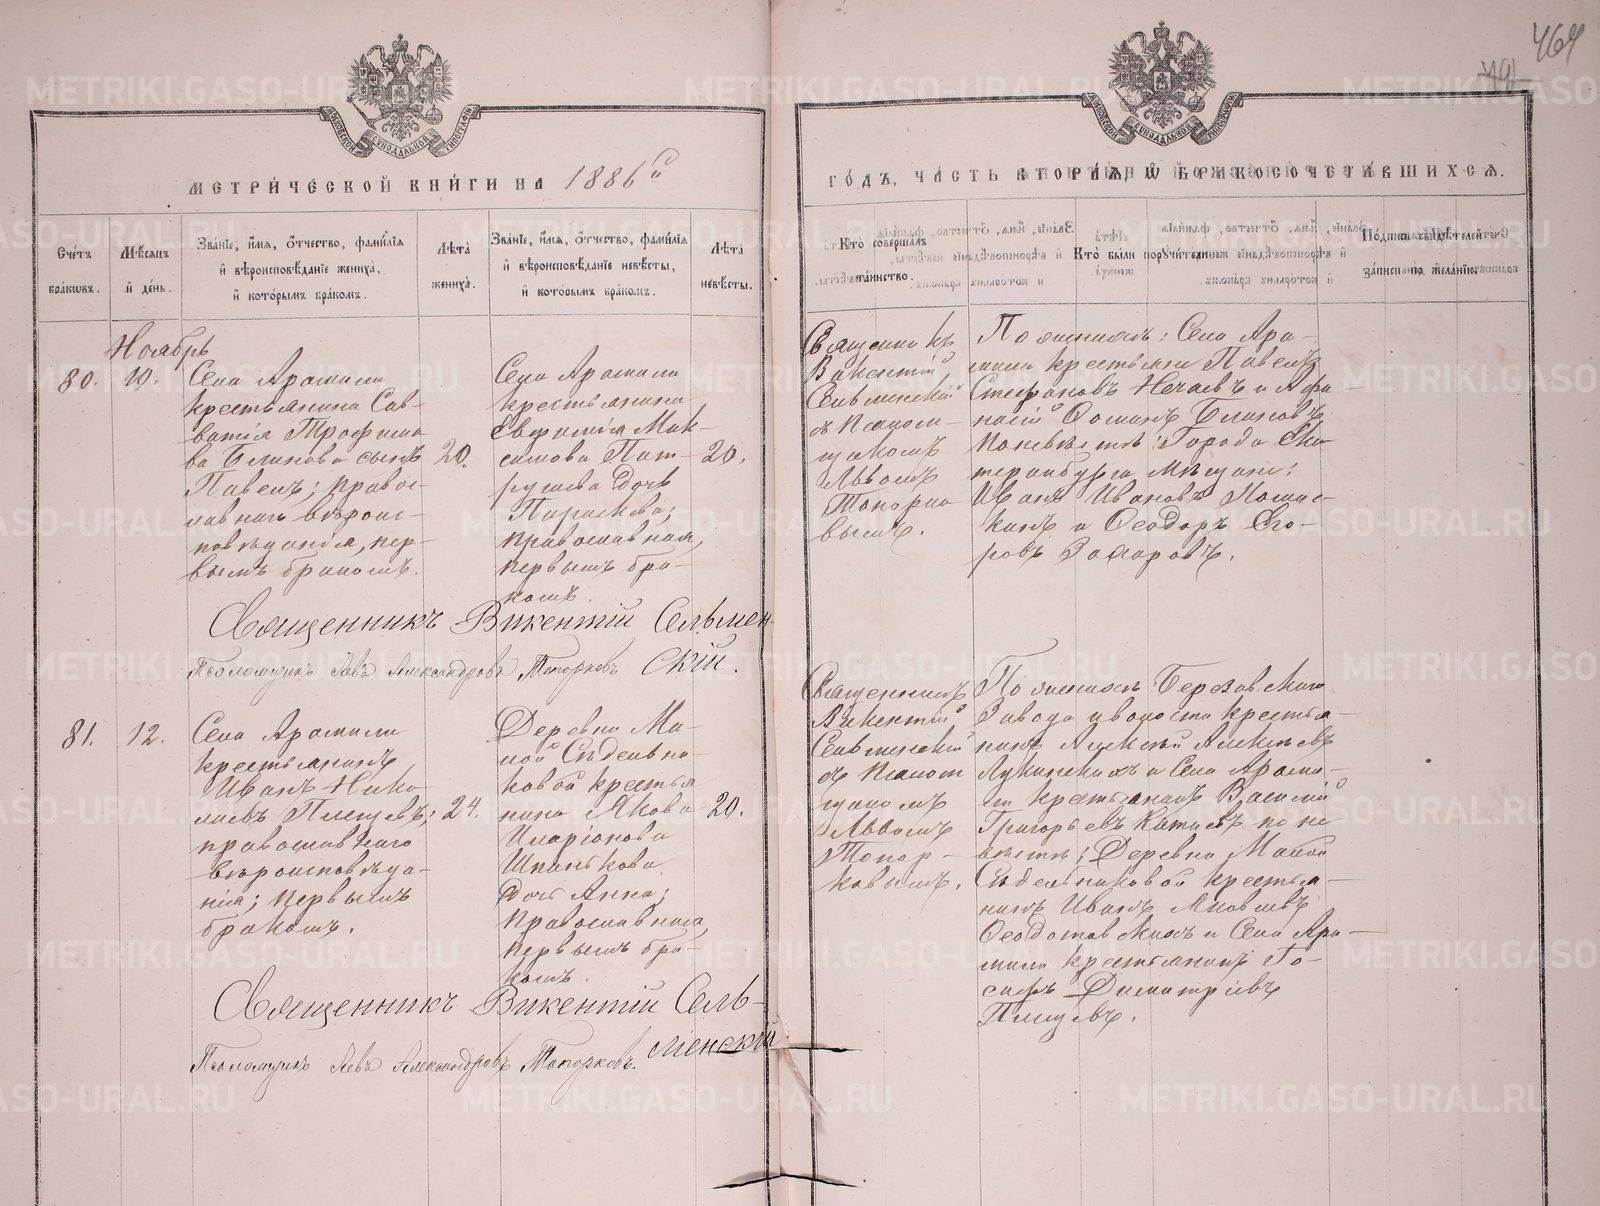 464
МЕТРИ́ЧЕСКОЙ КНИ́ГИ НА 1886й
ГО́ДЪ, ЧА́СТЬ ВТОРА́Я, Ѡ҆ БРАКОСОЧЕТА́ВШИХСЯ.
Сче́тъ бра́кѡвъ.
Мѣ́сяцъ и҆ де́нь.
Зва́нїе, и҆́мя, ѻ҆́тчество, фамі́лїя и҆ вѣроисповѣ́данїе жениха̀, и҆ кото́рымъ бра́комъ.
Лѣ́та жениха̀.
Зва́нїе, и҆́мя, ѻ҆́тчество, фамі́лїя и҆ вѣроисповѣ́данїе невѣ́сты, и҆ кото́рымъ бра́комъ.
Лѣ́та невѣ́сты.
Кто̀ соверша́лъ та́инство.
Кто̀ бы́ли поручи́тели.
По́дпись свидѣ́телей записи по жела́нїю.
Ноябрь
80.
10.
Села Арамили
крестьянина Сав-
ватія Трофимо
ва Блинова сынъ
Павелъ; правос-
лавнаго вѣроис-
повѣданія, пер-
вымъ бракомъ.
20.
Села Арамили
крестьянина
Евфимія Мак-
симова Пат-
рушева дочь
Параскева;
православная,
первымъ бра-
комъ.
20.
Священникъ
Викентій
Сельменскій
съ Псалом-
щикомъ
Львомъ
Топорко
вымъ.
По женихѣ: Села Ара-
мили крестьяне Павелъ
Стефановъ Нечаевъ и Афа-
насій Ѳоминъ Блиновъ
по невѣстѣ: Города Ека-
теринбурга мѣщане:
Иванъ Ивановъ
и Ѳеодоръ Его-
ровъ Захаровъ.
Священникъ Викентій Сельмен-
скій.
Псаломщикъ Левъ Александровъ Топорковъ
81.
12.
Села Арамили
крестьянинъ
Иванъ Нико-
лаевъ Плещевъ;
православнаго
вѣроисповѣда-
нія; первымъ
бракомъ.
24.
Деревни Ма-
лой Сѣдельни-
ковой крестья
нина Якова
Иларіонова
Шпанькова
дочь Анна;
православная,
первымъ бра-
комъ.
20.
Священникъ
Викентій
Сельменскій
съ Псалом
щикомъ
Львомъ
Топор-
ковымъ.
По женихѣ Березовскаго
Завода и волости крестья-
нинъ Алексѣй Алексѣевъ
Лукинскихъ и Села Арами-
ли крестьянинъ Василій
Григорьевъ Катаевъ по не
вѣстѣ; Деревни Малой
Сѣдельниковой крестья-
нинъ Иванъ Яковлевъ
Ѳеодотовскихъ и Села Ара-
мили крестьянинъ Іо-
сифъ Димитріевъ
Плещевъ.
Священникъ Викентій Сель-
менскій
Псаломщикъ Левъ Александровъ Топорковъ.